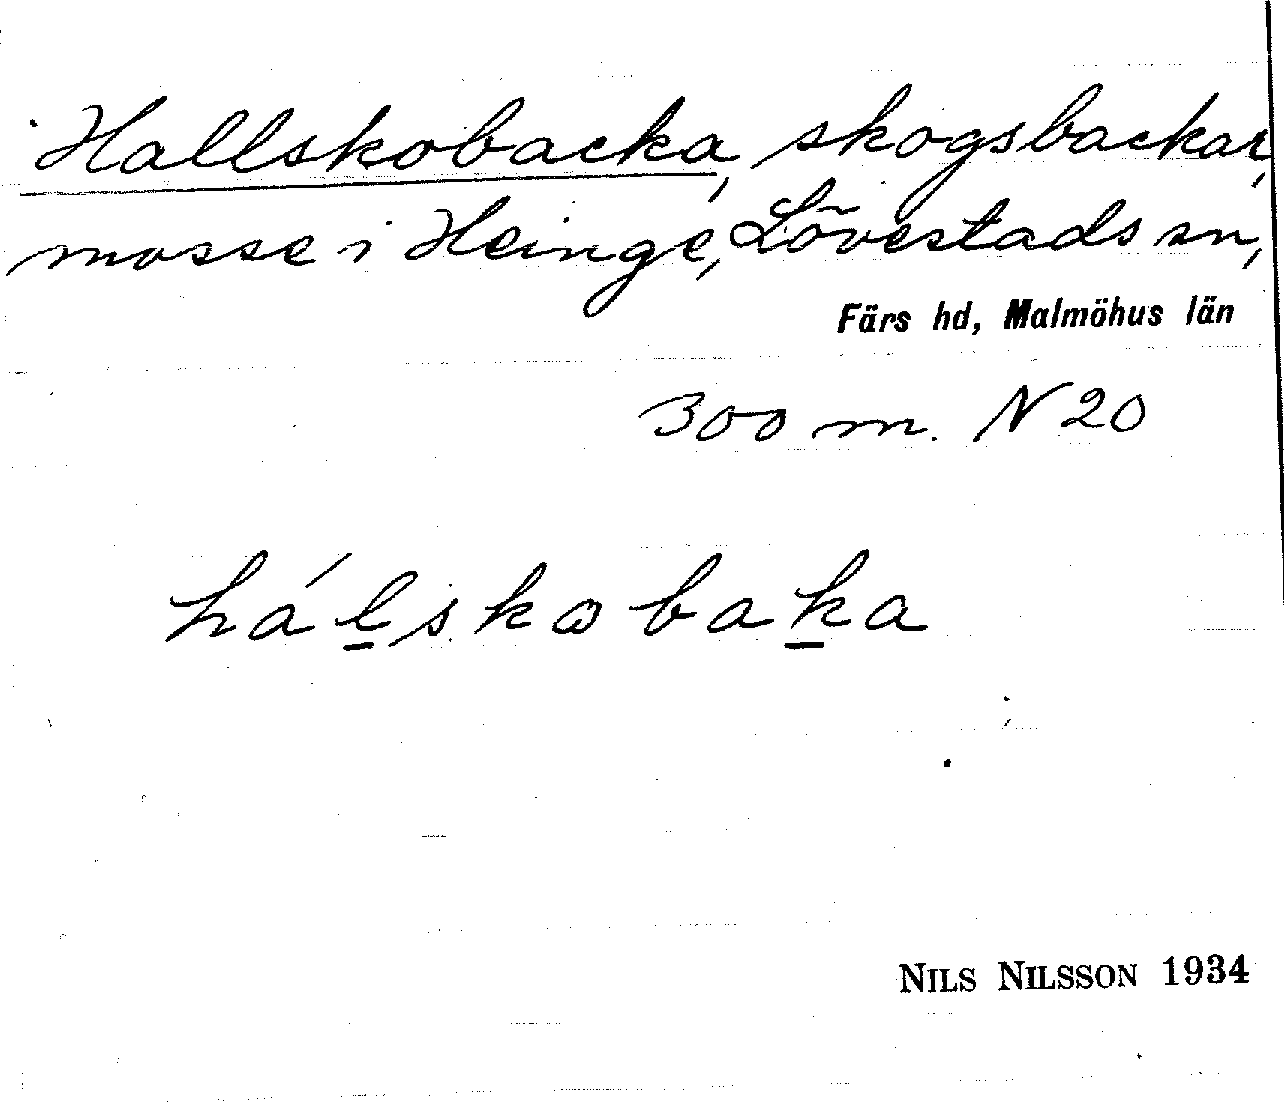 Hallskobacka, skogsbackar,
mosse i Heinge, Lövestads sn,
Färs hd, Malmöhus län
300 m. N 20
hálskobaka
NILS NILSSON 1934